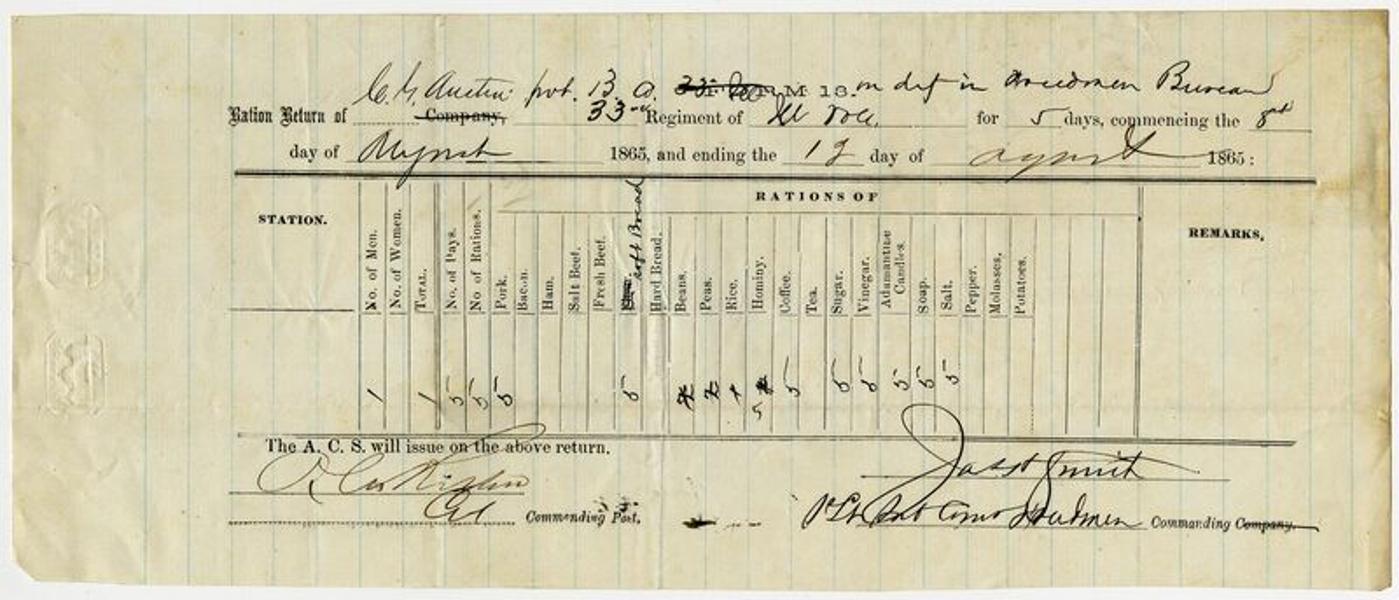 C. G. Austin pvt. B. Co. M 18. on dut in Freedmen Bureau
Ration Return of Company, 33rd Regiment of Ill Vols. for 5 days, commencing the 8th
day of August 1865, and ending the 12 day of August 1865:
RATIONS OF
STATION.
No. of Men.
No. of Women.
TOTAL.
No. of Days.
No of Rations.
Pork.
Bacon.
Ham.
Salt Beef.
Fresh Beef.
soft Bread
Hard Bread.
Beans.
Peas.
Rice.
Hominy.
Coffee.
Tea.
Sugar.
Vinegar.
Adamantine Candles.
Soap.
Salt.
Pepper.
Molasses.
Potatoes.
REMARKS.
1 1 5 5 5 5 5 5 5 5 5 5 5
The A. C. S. will issue on the above return.
Smith
Col Commending Post.
1st Lt Freedmen Commanding Company.